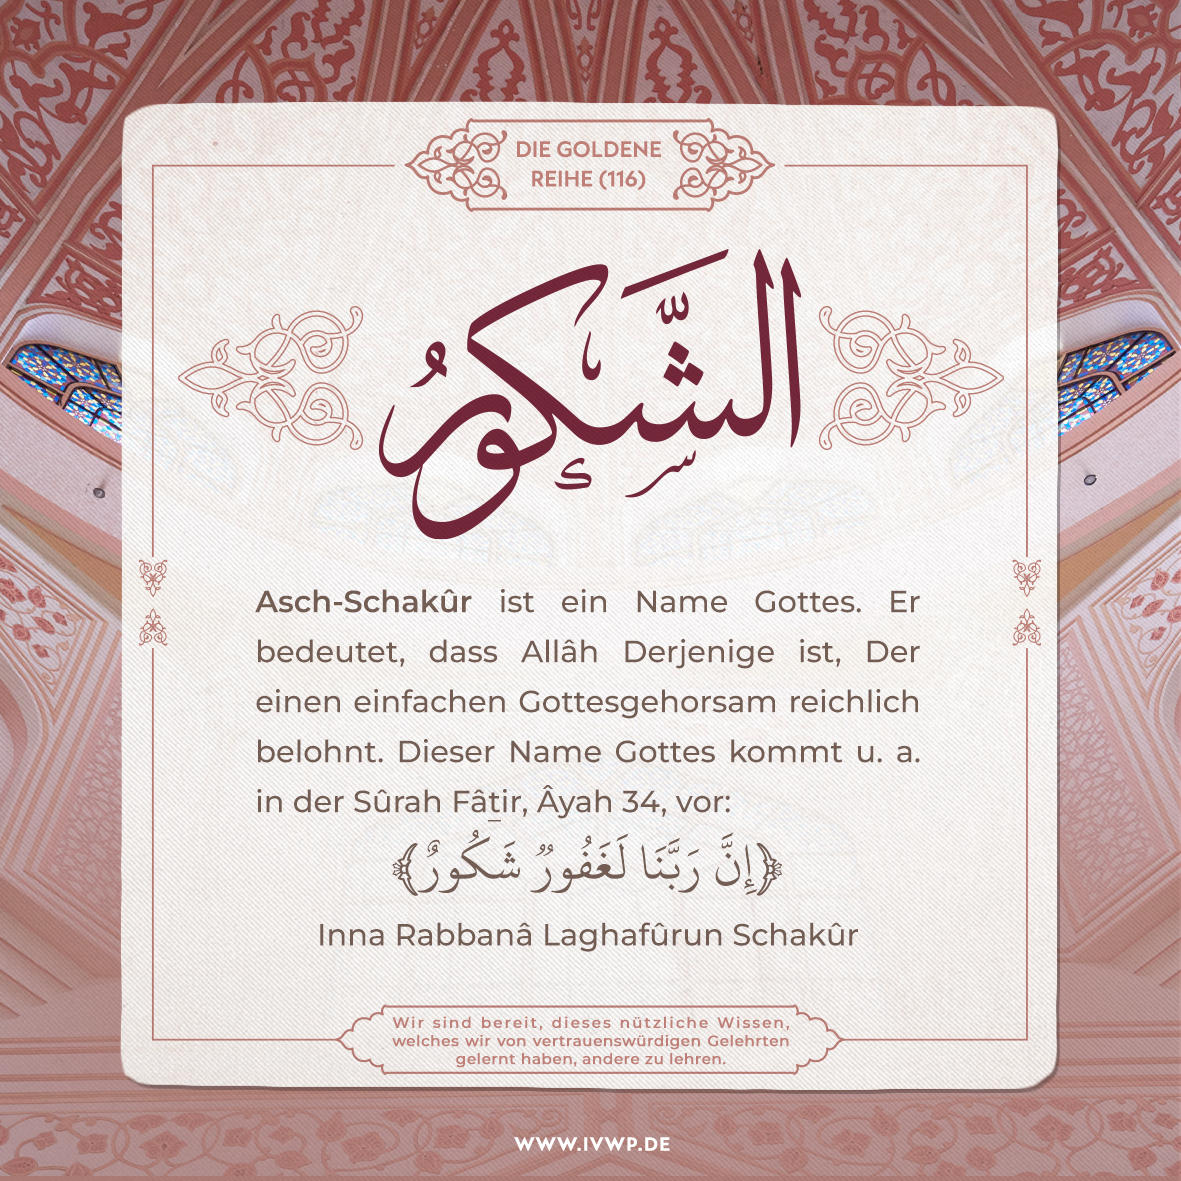 DIE GOLDENE
REIHE (116)
الشَّكورُ
Asch-Schakûr ist ein Name Gottes. Er
bedeutet, dass Allâh Derjenige ist, Der
einen einfachen Gottesgehorsam reichlich
belohnt. Dieser Name Gottes kommt u. a.
in der Sûrah Fâṯir, Âyah 34, vor:
﴿إِنَّ رَبَّنَا لَغَفُورٌ شَكُورٌ﴾
Inna Rabbanâ Laghafûrun Schakûr
Wir sind bereit, dieses nützliche Wissen,
welches wir von vertrauenswürdigen Gelehrten
gelernt haben, andere zu lehren.
WWW.IVWP.DE